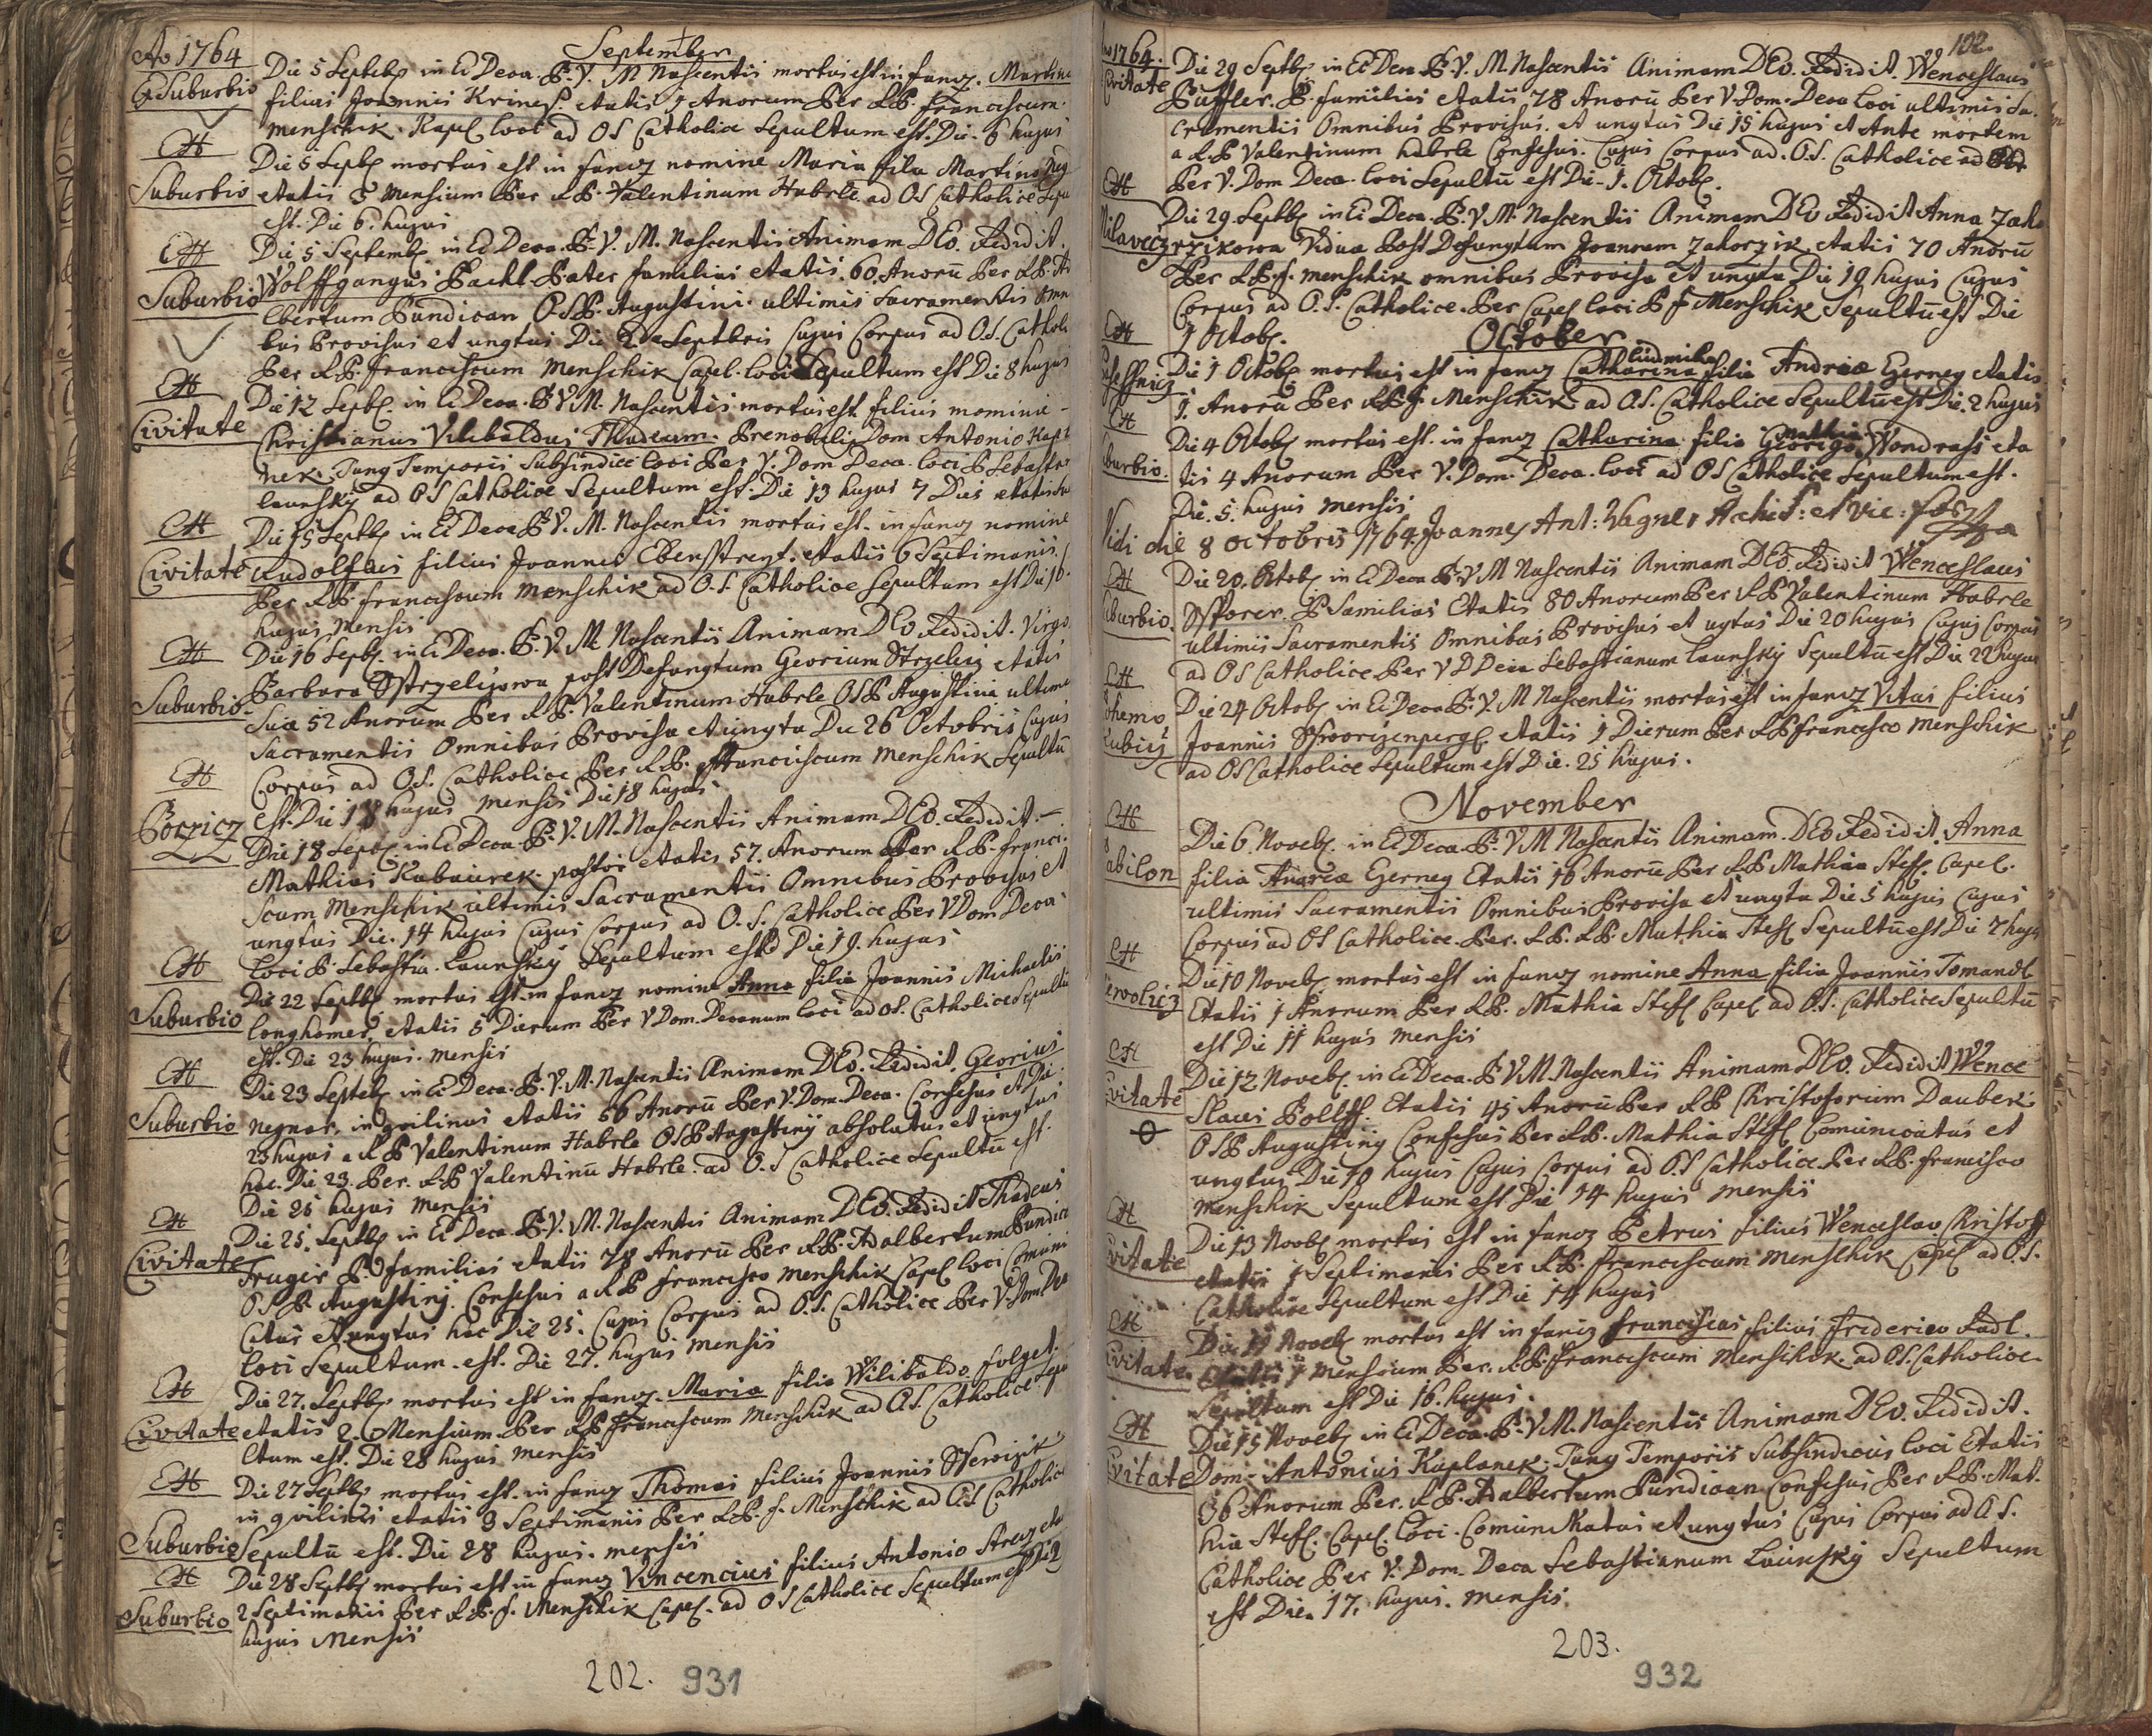 Ao 1764
September
E Suburbio
Die 5 Septeb in Ec Deca. B. V. M Nascentis mortus est in fanz. Martin
filius Joannis Krines etatis 1 Anorum Per R.P. Franciscum
Menschik. Kapel loci ad OS Catholice Sepultum est. Die. 6 hujus
Et
Suburbio
Die 5 Septb mortus est in fanz nomine Maria filia Martino
etatis 3 Mensium Per R.P. Valentinum Habrle ad OS Catholice Sepu
est. Die 6. hujus
Et
Suburbio
Die 5 Septemb in Ec Deca. B. V. M. Nascentis Animam DEO. Redidit.
Wolffgangus Bachl Pater familias etatis. 60. Anorū Per R.P. A
lbertum Pundican O.S.P. Augustini. ultimis Sacramentis Omni
bus Provisus et ungtus Die 2 Septbris Cujus Corpus ad O.S. Catholi
Per R.P. Franciscum Menschik Capel. loci Sepultum est Die 8 hujus
Et
Civitate
Die 12 Septb. in Ec Deca. B V M. Nascentis mortus est filius nomine
Christianus Vilibaldus Thadeum. Prenobilis Dom Antonio Kapl
nek. Tung Temporis Subsindice loci Per V. Dom Deca. loci P. Sebasti
launsky ad OS Catholice Sepultum est. Die 13 hujus 7 Dies etatis su
Et
Civitate
Die 15 Septb in Ec Deca B V. M. Nascentis mortus est. in fanz nomine
Rudolfus filius Joannes Ebenstreyt. etatis 6 Septimanis
Per R.P. franciscum Menschik ad O.S. Catholice Sepultum est Die 16.
hujus Mensis
Et
Suburbio
Die 16 Septb. in Ec Deca. B. V. M. Nascentis Animam DEO Redidit. Virgo
Barbara Strzelizowa post Defungtum Georium Strzeleiz etatis
Sue 52 Anorum Per R.P. Valentinum Habrle OSP Augustini ultimis
Sacramentis Omnibus Provisa et ungta Die 26 Octobris Cujus
Corpus ad OS. Catholice Per R.P. franciscum Menschik Sepultū
est. Die 18 hujus Mensis Die 18 hujus
Et
Borzicz
Die 18 Septb in Ec Deca. B. V. M. Nascentis Animam DEO. Redidit.
Mathias Kubaurek. pastor etatis 57. Anorum Per R.P. franci
scum Menschik ultimis Sacramentis Omnibus Provisus et
ungtus Die. 14 hujus Cujus Corpus ad O.S. Catholice Per V Dom. Deca
loci P Sebastia. Launsky Sepultum est Die 19. hujus
Et
Suburbio
Die 22 Septb mortus est. in fanz nomine Anna filia Joannis Michaelis
longhomer. etatis 5 Dierum Per V Dom. Decanum loci ad OS. Catholice Sepultū
est. Die 23 hujus. Mensis
Et
Suburbio
Die 23 Septeb in Ec Deca. B. V. M. Nascentis Animam DEO. Redidit. Georius
Neymar. inqvilinus etatis 56 Anorū Per V. Dom. Deca. Confesus et Die
23 hujus a R P Valentinum Habrle OSP Augustiny absolutus et ungtus
hac. Die 23. Per. R.P Valentinū Habrle. ad O.S Catholice Sepultū est.
Die 25 hujus Mensis
Et
Civitate
Die 25. Septb in Ec Deca B. V. M. Nascentis Animam DEO. Redidit Thadeus
Truger P. familias etatis 78 Anorū Per R.P. Adalbertum Pundica
O.S.P. Augustiny. Confesus a R P francisco Menschik Capel loci Comuni
catus et ungtus hac Die 25. Cujus Corpus ad O.S. Catholice Per V. Dom Deca
loci Sepultum. est. Die 27. hujus Mensis
Et
Civitate
Die 27. Septb mortus est in fanz. Maria filia Wilibaldo folget.
etatis 2. Mensium Per R.P franciscum Menschik ad O.S. Catholice Sepu
ltum est. Die 28 hujus Mensis
Et
Suburbio
Die 27 Septb mortus est. in fanz Thomas filius Joannis
inqvilini etatis 3 Septimanis Per R.P. f. Menschik ad OS Catholice
Sepultū est. Die 28 hujus. Mensis
Et
Suburbio
Die 28 Septb mortus est in fanz Vincencius filius Antonio etat
2 Septimanis Per R.P. f. Menschik Capel. ad OS Catholice Sepultum est Die
hujus Mensis
202. 931
102.
1764.
Civitate
Die 29 Septb. in Ec Deca B. V. M. Nascentis Animam DEO. Redidit. Wenceslaus
Püffler. P. familias etatis 78 Anorū Per V. Dom. Deca loci ultimis Sa
cramentis Omnibus Provisus. et ungtus Die 15 hujus et Ante mortem
a R.P Valentinum habrle Confesus. Cujus Corpus ad. O.S. Catholice ad
Per V. Dom Deca. loci Sepultū est Die 1. Octob.
Et
Milavecz
Die 29. Septb in Ec Deca. B. V M. Nascentis Animam DEO Redidit Anna Zaho
rzikowa Vidua Post Defungtum Joannem Zahorzik etatis 70 Anorū
Per R.P. f. Menschik omnibus Provisa et ungta Die 19 hujus Cujus
Corpus ad O.S. Catholice. Per Capel loci P f Menschik Sepultū est Die
1 Octob.
October
Et
Die 1 Octob mortus est in fanz Catharina Ludmila filia Andrea Gerney etatis
1. Anorū Per R.P. f Menschik ad O.S. Catholice Sepultū est Die. 2 hujus
Et
Suburbio.
Die 4 Octob mortus est. in fanz Catharina filia Georigo Mathia Wondrass eta
tis 4 Anorum Per V. Dom. Deca. loci ad OS Catholice Sepultum est.
Die. 5. hujus Mensis
Vidi die 8 octobris 1764. Joannes Ant: Wagner Archid: et Vic: for
Et
Suburbio.
Die 20. Octob in Ec Deca B V M Nascentis Animam DEO. Redidit Wenceslaus
P familias Etatis 80 Anorum Per R P Valentinum Habrle
ultimis Sacramentis Omnibus Provisus et ugtus Die 20 hujus Cujus Corpus
ad OS Catholice Per V D Deca Sebastianum Launsky Sepultū est Die 22 hujus
Et
Bohemo
Kubicy
Die 24 Octob in Ec Deca B. V. M Nascentis mortus est in fanz Vitus filius
Joannis etatis 1 Dierum Per R P francisco Menschik
ad OS Catholice Sepultum est Die. 25 hujus.
November
Et
Babilon
Die 6. Noveb. in Ec Deca B. V M Nascentis Animam. DEO Redidit. Anna
filia Andrea Gerney Etatis 16 Anorū Per R P Mathia Stefl. Capel.
ultimis Sacramentis Omnibus Provisa et ungta Die 5 hujus Cujus
Corpus ad OS Catholice. Per. R.P. R.P. Mathia Stefl Sepultū est Die 7 hujus
Et
Die 10 Noveb mortus est in fanz nomine Anna filia Joannis Tomandl
Etatis 1 Anorum Per R.P. Mathia Stefl Capel ad O.S. Catholice Sepultū
est Die 11 hujus Mensis
Et
Civitate
Die 12 Noveb. in Ec Deca. B V M. Nascentis Animam DEO. Redidit Wence
slaus Etatis 45 Anorū Per R P Christoforium Dauber
OSP Augustiny Confesus Per R.P. Mathia Stefl Comunicatus et
ungtus Die 10 hujus Cujus Corpus ad O.S Catholice Per R.P. francisco
Menschik Sepultum est Die 14 hujus Mensis
Et
Civitate
Die 13 Noveb mortus est in fanz Petrus filius Wenceslao Christof
etatis 1 Septimanis Per R.P. franciscum Menschik Capel ad O.S.
Catholice Sepultum est Die 14 hujus
Et
Civitate.
Die Noveb mortus est in fanz franciscus filius frederico Radl.
1 Mensium Per. R.P. franciscum Menschik. ad OS. Catholice
Sepultum est Die 16. hujus.
Et
Civitate
Die 15 Noveb in Ec Deca. B. V. M. Nascentis Animam DEO. Redidit.
Dom. Antonius Kaplanek. Tung Temporis Subsindicus loci Etatis
36 Anorum Per. R P. Adalbertum Pundican Confesus Per R.P. Mat
hia Stefl. Capel. Loci. Comunikatus et ungtus Cujus Corpus ad O S.
Catholice Per V. Dom. Deca Sebastianum Launsky Sepultum
est Die. 17. hujus. Mensis.
203.
932